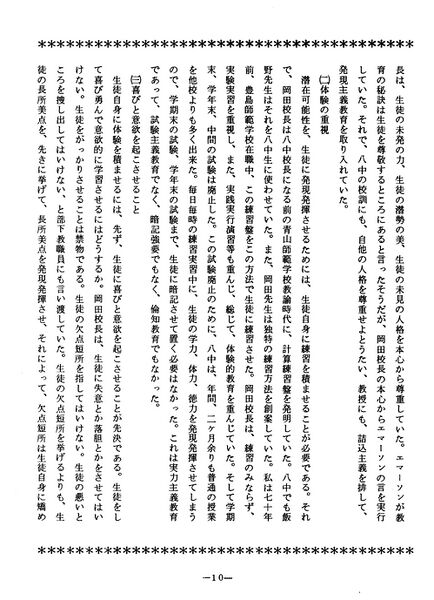 ＊＊＊＊＊＊＊＊＊＊＊＊＊＊＊＊＊＊＊＊＊＊＊＊＊＊＊＊＊＊＊＊＊＊＊＊
長は、生徒の未発の力、生徒の潜勢の美、生徒の未見の人格を本心から尊重していた。エマーソンが教
育の秘訣は生徒を尊敬するところにあると言ったそうだが、岡田校長の本心からエマーソンの言を実行
していた。それで、八中の校訓にも、自他の人格を尊重せよとうたい、教授にも、詰込主義を排して、
発現主義教育を取り入れていた。
㈡体験の重視
潜在可能性を、生徒に発現発揮させるためには、生徒自身に練習を積ませることが必要である。それ
で、岡田校長は八中校長になる前の青山師範学校教諭時代に、計算練習盤を発明していた。八中でも飯
野先生はそれを八中生に使わせていた。また、岡田先生は独特の練習方法を創案していた。私は七十年
前、豊島師範学校在職中、この練習盤をこの方法で生徒に練習させた。岡田校長は、練習のみならず、
実験実習を重視し、また、実践実行演習等も重んじ、総じて、体験的教育を重んじていた。そして学期
末、学年末、中間の試験は廃止した。この試験廃止のために、八中は、年間、二ヶ月余りも普通の授業
を他校よりも多く出来た。毎日毎時の練習実習中に、生徒の学力、体力、徳力を発現発揮させてしまう
ので、学期末の試験、学年末の試験まで、生徒に暗記させて置く必要はなかった。これは実力主義教育
であって、試験主義教育でなく、暗記強要でもなく、倫知教育でもなかった。
㈢喜びと意欲を起こさせること
生徒自身に体験を積ませるには、先ず、生徒に喜びと意欲を起こさせることが先決である。生徒をし
て喜び勇んで意欲的に学習させるにはどうするか。岡田校長は、生徒に失意とか落胆とかをさせてはい
けない。生徒をがっかりさせることは禁物である。生徒の欠点短所を指してはいけない。生徒の悪いと
ころを捜し出してはいけない、と部下教職員にも言い渡していた。生徒の欠点短所を挙げるよりも、生
徒の長所美点を、先きに挙げて、長所美点を発現発揮させ、それによって、欠点短所は生徒自身に矯め
＊＊＊＊＊＊＊＊＊＊＊＊＊＊＊＊＊＊＊＊＊＊＊＊＊＊＊＊＊＊＊＊＊＊＊＊
—10—